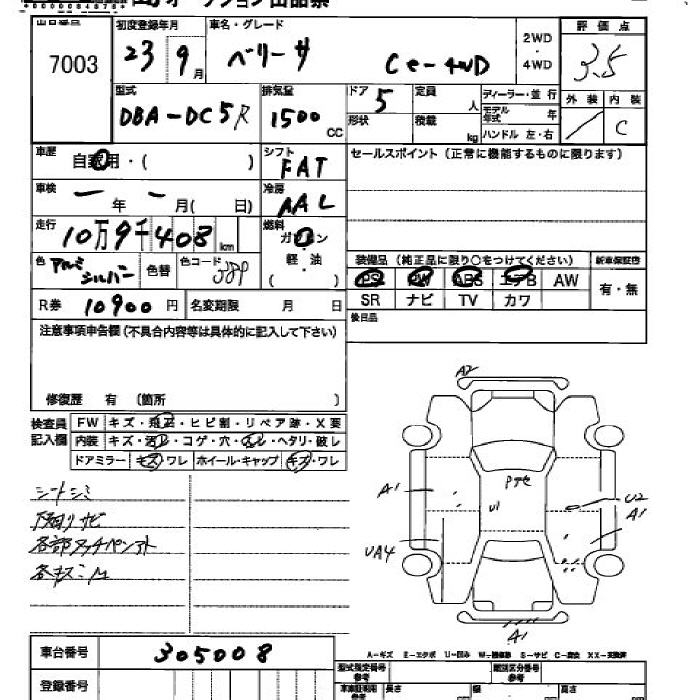 出品番号 初度登録年月 車名・グレード 2WD ・ 4WD 評価点
7003 23 9月 ベリーサ Ce-4WD 3.5
型式 排気量 ドア 定員 ディーラー・並行 外装 内装
DBA-DC5R 1500 CC 5 人 モデル年式 年 C
形状 積載 kg ハンドル 左・右
車歴 自家用・( ) シフト FAT セールスポイント(正常に機能するものに限ります)
車検 ー 年 ー 月( 日) 冷房 AAC
走行 10万9千408km 燃料 ガソリン
色 アルミシルバー 色替 色コード 38P 軽・油 ( )
装備品(純正品に限り○をつけてください) 新車保証書
PS PW ABS エアB AW 有・無
SR ナビ TV カワ
R券 10900円 名変期限 月 日 後日品
注意事項申告欄(不具合内容等は具体的に記入して下さい)
修復歴 有 〔箇所 〕
検査員記入欄 FW キズ・飛石・ヒビ割・リペア跡・X要
内装 キズ・汚レ・コゲ・穴・スレ・ヘタリ・破レ
ドアミラー キズ・ワレ ホイール・キャップ キズ・ワレ
シートシミ
下回りサビ
各部タッチペイント
A2
A1
UA4
U1
U2
A1
A1
A-キズ E-エクボ U-凹み W-補修跡 S-サビ C-腐食 XX-交換済
車台番号 305008
登録番号
型式指定番号 参考 類別区分番号 参考
長さ 幅 高さ